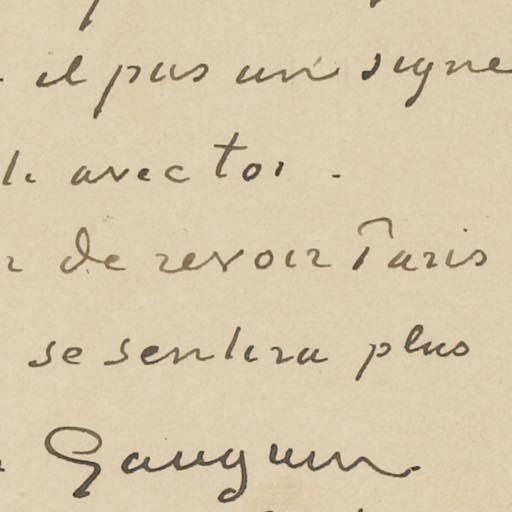 il pas un signe
avec toi.
de revoir Paris
se sentira plus
Gauguin.